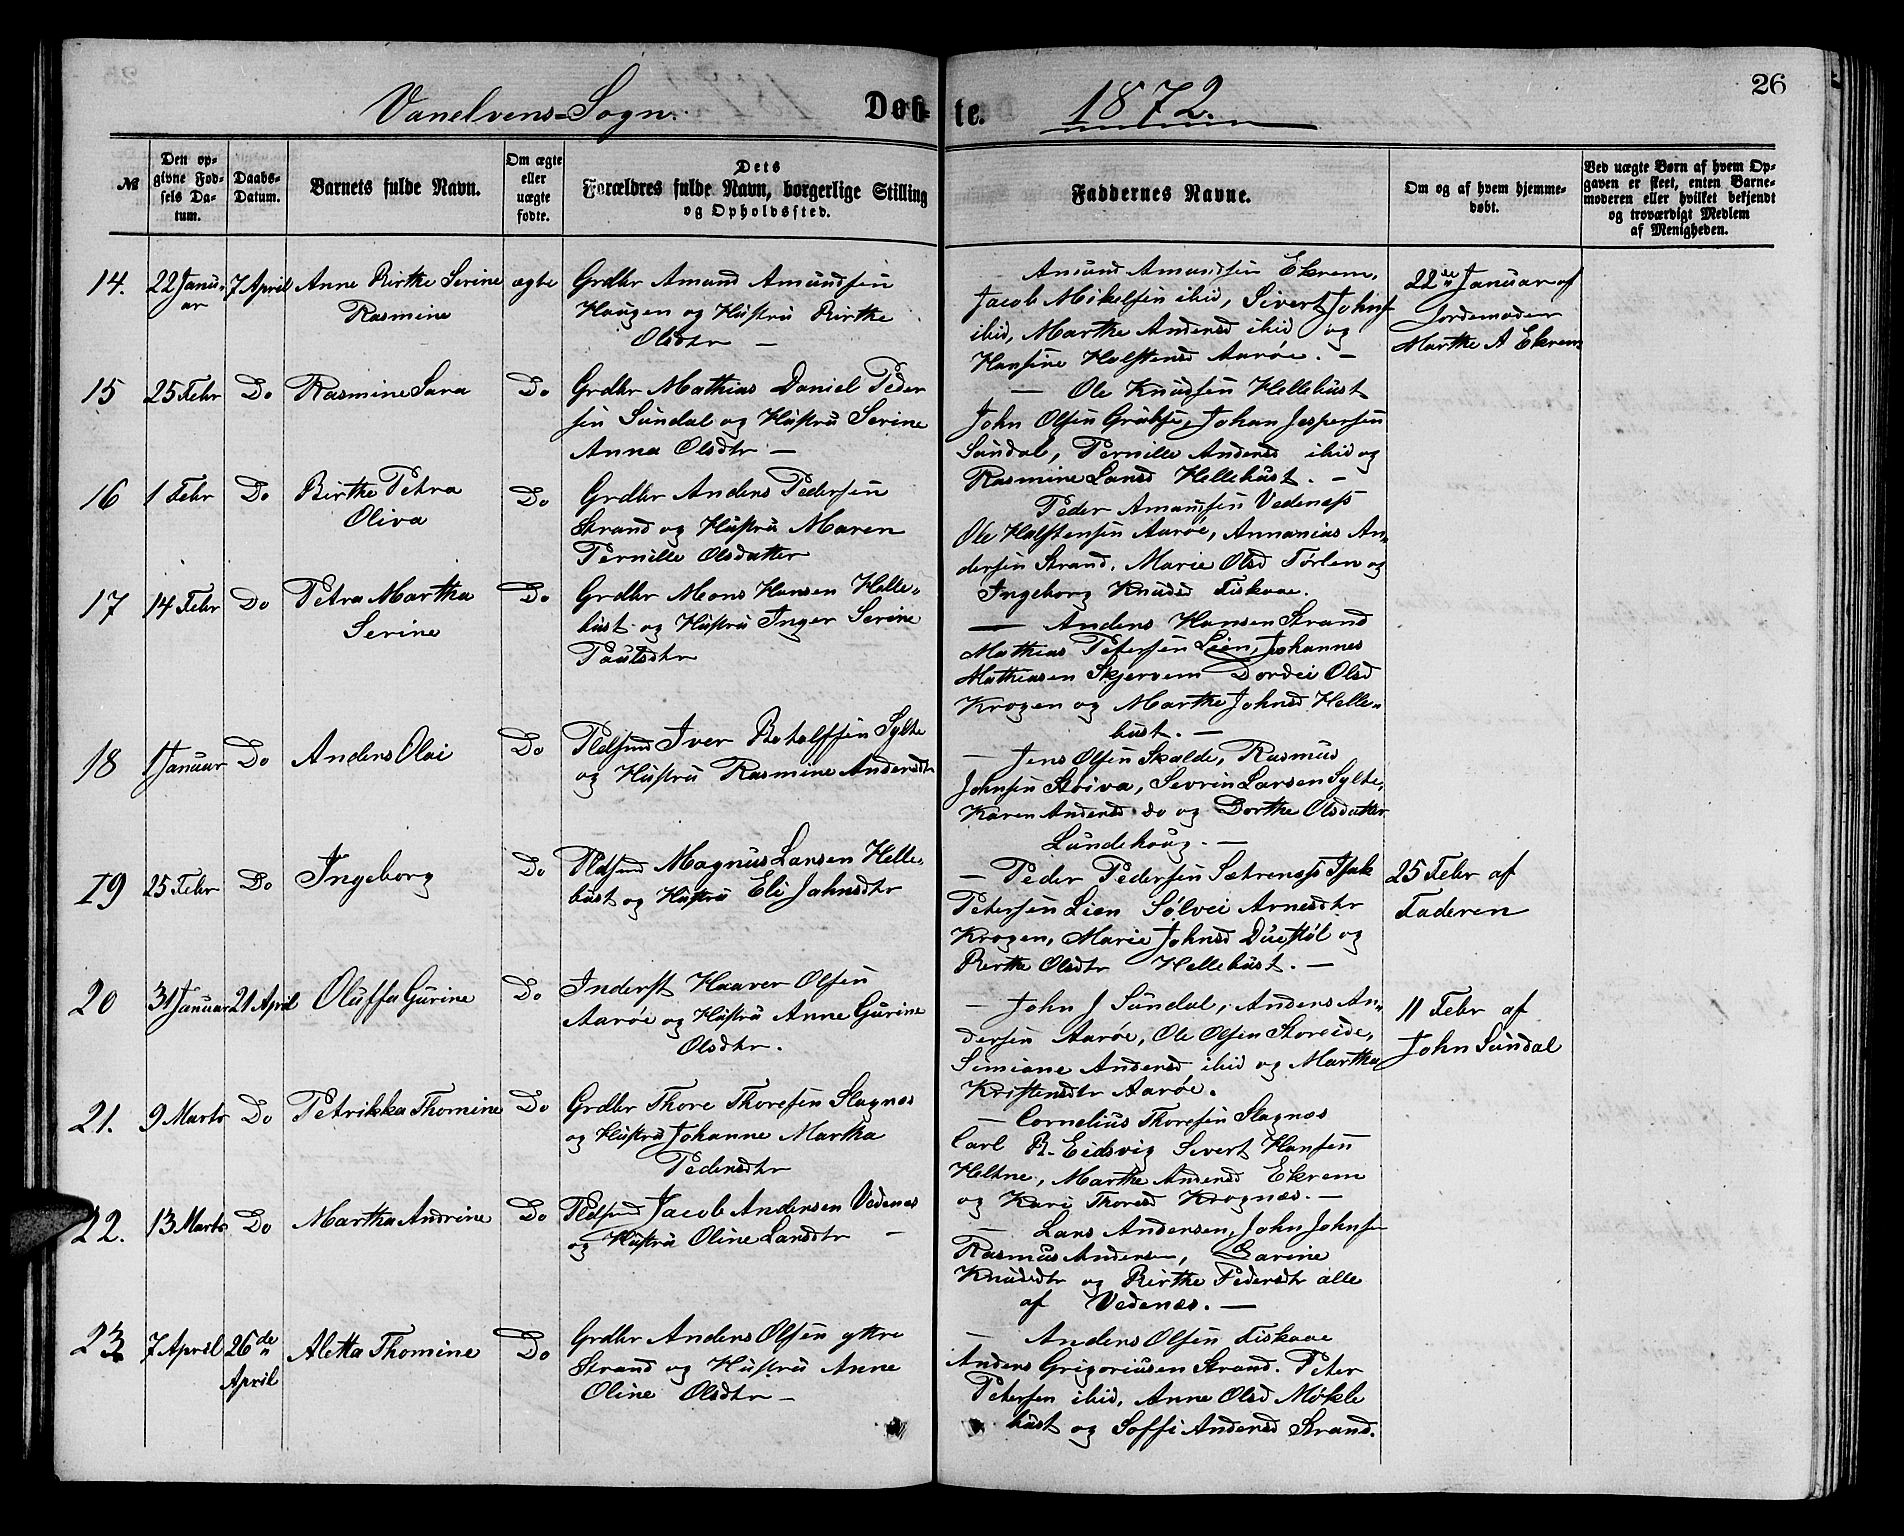 26
Vanelvens-Sogn. Døbte. 1872.
№
Den op-
givne Fød-
sels Da-
tum.
Daabs-
Datum.
Barnets fulde Navn.
Om ægte
eller
uægte
fødte.
Dets
Forældres fulde Navn, borgerlige Stilling
og Opholdssted.
Faddernes Navne.
Om og af hvem hjemme-
døbt.
Ved uægte Børn af hvem Op-
gaven er skeet, enten Barne-
moderen eller hvilket bekjendt
og troværdigt Medlem
af Menigheden.
14. 22 Janu-
ar
7 April
Anne Birthe Serine
Rasmine
ægte
Grdbr Amund Amundsen
Haugen og Hustru Birthe
Olsdtr –
Amund Amundsen Ekrem,
Jacob Mikelsen ibid, Sivert Johns
ibid, Marthe Andersd ibid og
Hansine Holstensd Aarøe. –
22de Januar af
Jordemoder
Marthe A Ekrem
15 25 Febr Do Rasmine Sara Do
Grdbr Mathias Daniel Peder
sen Sundal og Hustru Serine
Anna Olsdtr –
– Ole Knudsen Hellebust
John Olsen Grubse, Johan Jespersen
Sundal, Pernille Andersd ibid og
Rasmine Larsd Hellebust. –
16 1 Febr Do Birthe Petra
Oliva
Do
Grdbr Anders Pedersen
Strand og Hustru Maren
Pernille Olsdatter
Peder Amundsen Vedeness
Ole Holstensen Aarøe, Annanias An-
dersen Strand, Marie Olsd Tørlen og
Ingeborg Knudsd Fiskaae.
17 14 Febr Do Petra Martha
Serine
Do
Grdbr Mons Hansen Helle-
bust og Hustru Inger Serine
Paulsdtr
– Anders Hansen Strand
Mathias Petersen Lien, Johannes
Mathiasen Skjervem Dordei Olsd
Krogen og Marthe Johnsd Helle-
bust. –
18 1 Januar Do Anders Olai Do
Pldsmd Iver Botolfsen Sylte
og Hustru Rasmine Andersdtr
– Jens Olsen Skalde, Rasmus
Johnsen Støiva, Sevrin Larsen Sylte,
Karen Andersd do og Dorthe Olsdatter
Lundehaug. –
19 25 Febr Do Ingeborg Do
Pldsmd Magnus Larsen Helle-
bust og Hustru Eli Johnsdtr
– Peder Pedersen Sætreness Isak
Petersen Lien Sølvei Arnesdtr
Krogen, Marie Johnsd Duestøl og
Berthe Olsdtr Hellebust. –
25 Febr af
Faderen
20 31 Januar 21 April Oluffa Gurine Do
Inderst Haaver Olsen
Aarøe og Hustru Anne Gurine
Olsdtr.
– John J Sundal, Anders An-
dersen Aarøe, Ole Olsen Storeide,
Simiane Andersd ibid og Martha
Kristensdtr Aarøe.
11 Febr af
John Sundal
21. 9 Marts Do Petrikka Thomine Do
Grdbr Thore Thoresen Slagnæs
og Hustru Johanne Martha
Pedersdtr
– Cornelius Thoresen Slagnæs
Carl R. Eidsvig Sivert Hansen
Heltne, Marthe Andersd Ekrem
og Kari Thoresd Krognæs. –
22. 13 Marts Do Martha Andrine Do
Pldsmd Jacob Andersen Vedenæs
og Hustru Oline Larsdtr –
– Lars Andersen, John Johns
Rasmus Andersen, Sarine
Knudsdtr og Birthe Pedersdtr alle
af Vedenæs. –
23 7 April 26de
April
Aletta Thomine Do
Grdbr Anders Olsen yttre
Strand og Hustru Anne
Oline Olsdtr –
– Anders Olsen Fiskaae
Anders Grigoriusen Strand. Peter
Petersen ibid, Anne Olsd Møkle
bust og Soffi Andersd Strand.